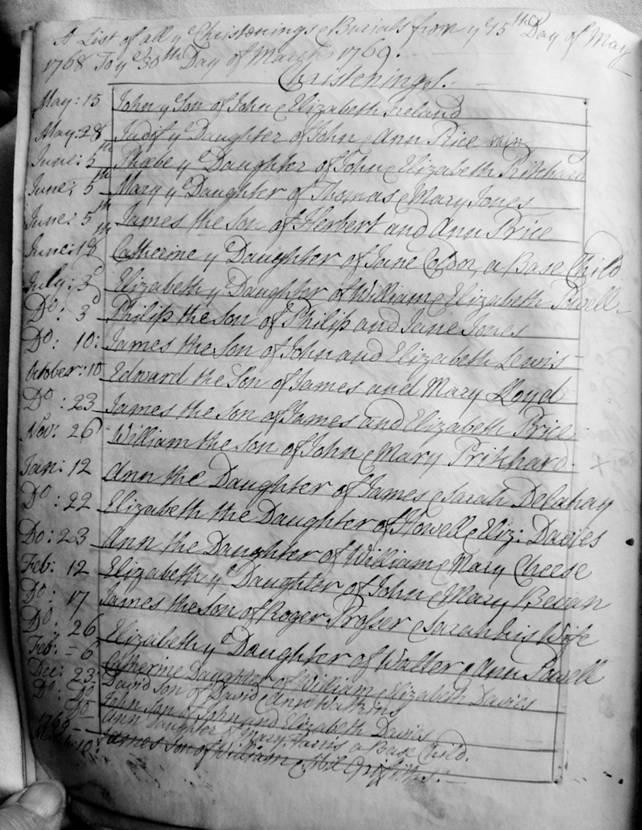 A List of all ye Christenings & Burials from ye 15th Day of May
1768 To ye 30th Day of March 1769.
Christenings.
May: 15 John ye Son of John & Elizabeth Ireland
May: 28 Judif ye Daughter of John & Ann Price
June: 5th Phebe ye Daughter of John & Elizabeth Pritchard
June: 5th Mary ye Daughter of Thomas & Mary Jones
June: 5th James the Son of Herbert and Ann Price
June: 18 Catherine ye Daughter of Jane a Base Child
July: 3d Elizabeth ye Daughter of William & Elizabeth Powell
Do: 3d Philip the Son of Philip and Jane Jones
Do: 10: James the Son of John and Elizabeth Lewis
October: 10 Edward the Son of James and Mary Lloyd
Do: 23 James the Son of James and Elizabeth Price
Nov: 26 William the Son of John & Mary Prichard
Jan: 12 Ann the Daughter of James & Sarah Delahay
Do: 22 Elizabeth the Daughter of Howell & Eliz: Davies
Do: 23 Ann the Daughter of William & Mary Cheese
Feb: 12 Elizabeth ye Daughter of John & Mary Bevan
Do: 17 James the Son of Roger Prosser & Sarah his Wife
Do: 26 Elizabeth ye Daughter of Walter & Ann Powell
Feb: 6 Catherine Daughter of William & Elizabeth Davies
Dec: 23 David Son of David & Ann Watkins
Do: John Son of John and Elizabeth Davis
Ann Daughter of Mary Harris a Base Child.
10 James Son of William & Griffiths.